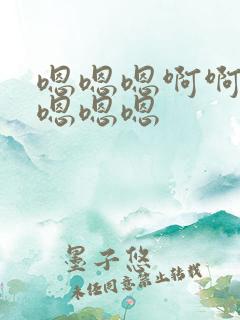 嗯嗯嗯啊啊
嗯嗯嗯
墨子悠
未经同意禁止转载